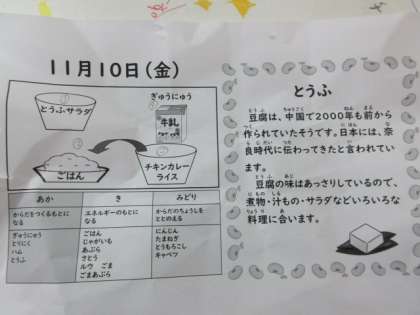 11月10日(金)
とうふサラダ
ぎゅうにゅう
牛乳
ごはん
チキンカレー
ライス
あか
き
みどり
からだをつくるもとに
なる
エネルギーのもとに
なる
からだのちょうしを
ととのえる
ぎゅうにゅう
とりにく
ハム
とうふ
ごはん
じゃがいも
あぶら
さとう
ルウ ごま
ごまあぶら
にんじん
たまねぎ
とうもろこし
キャベツ
とうふ
豆腐は、中国で2000年も前から
作られていたそうです。日本には、奈
良時代に伝わってきたと言われてい
ます。
豆腐の味はあっさりしているので、
煮物・汁もの・サラダなどいろいろな
料理に合います。